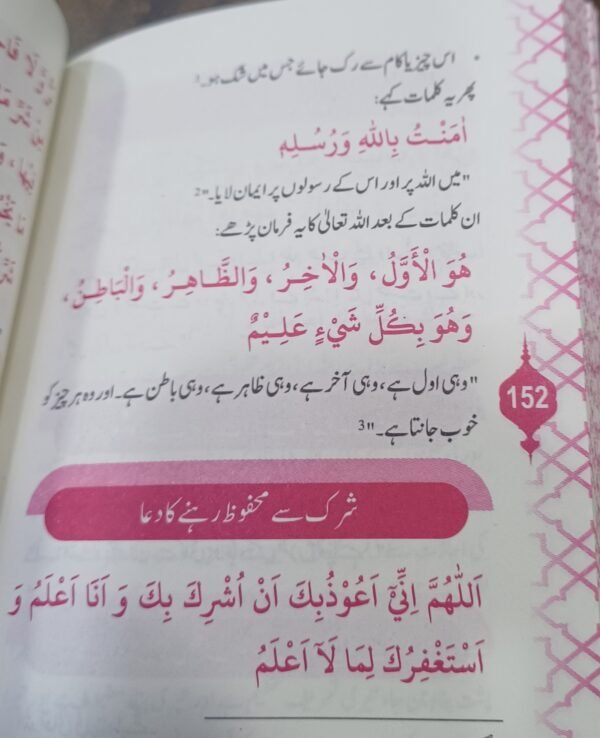 • اس چیز یا کام سے رک جائے جس میں شک ہو۔1
پھر یہ کلمات کہے:
اٰمَنْتُ بِاللهِ وَرُسُلِهٖ
"میں اللہ پر اور اس کے رسولوں پر ایمان لایا۔"2
ان کلمات کے بعد اللہ تعالیٰ کا یہ فرمان پڑھے:
هُوَ الْأَوَّلُ، وَالْاٰخِرُ، وَالظَّاهِرُ، وَالْبَاطِنُ،
وَهُوَ بِكُلِّ شَيْءٍ عَلِيْمٌ
"وہی اول ہے، وہی آخر ہے، وہی ظاہر ہے، وہی باطن ہے۔ اور وہ ہر چیز کو
خوب جانتا ہے۔"3
152
شرک سے محفوظ رہنے کا دعا
اَللّٰهُمَّ اِنِّيْٓ اَعُوْذُبِكَ اَنْ اُشْرِكَ بِكَ وَ اَنَا اَعْلَمُ وَ
اَسْتَغْفِرُكَ لِمَا لَآ اَعْلَمُ